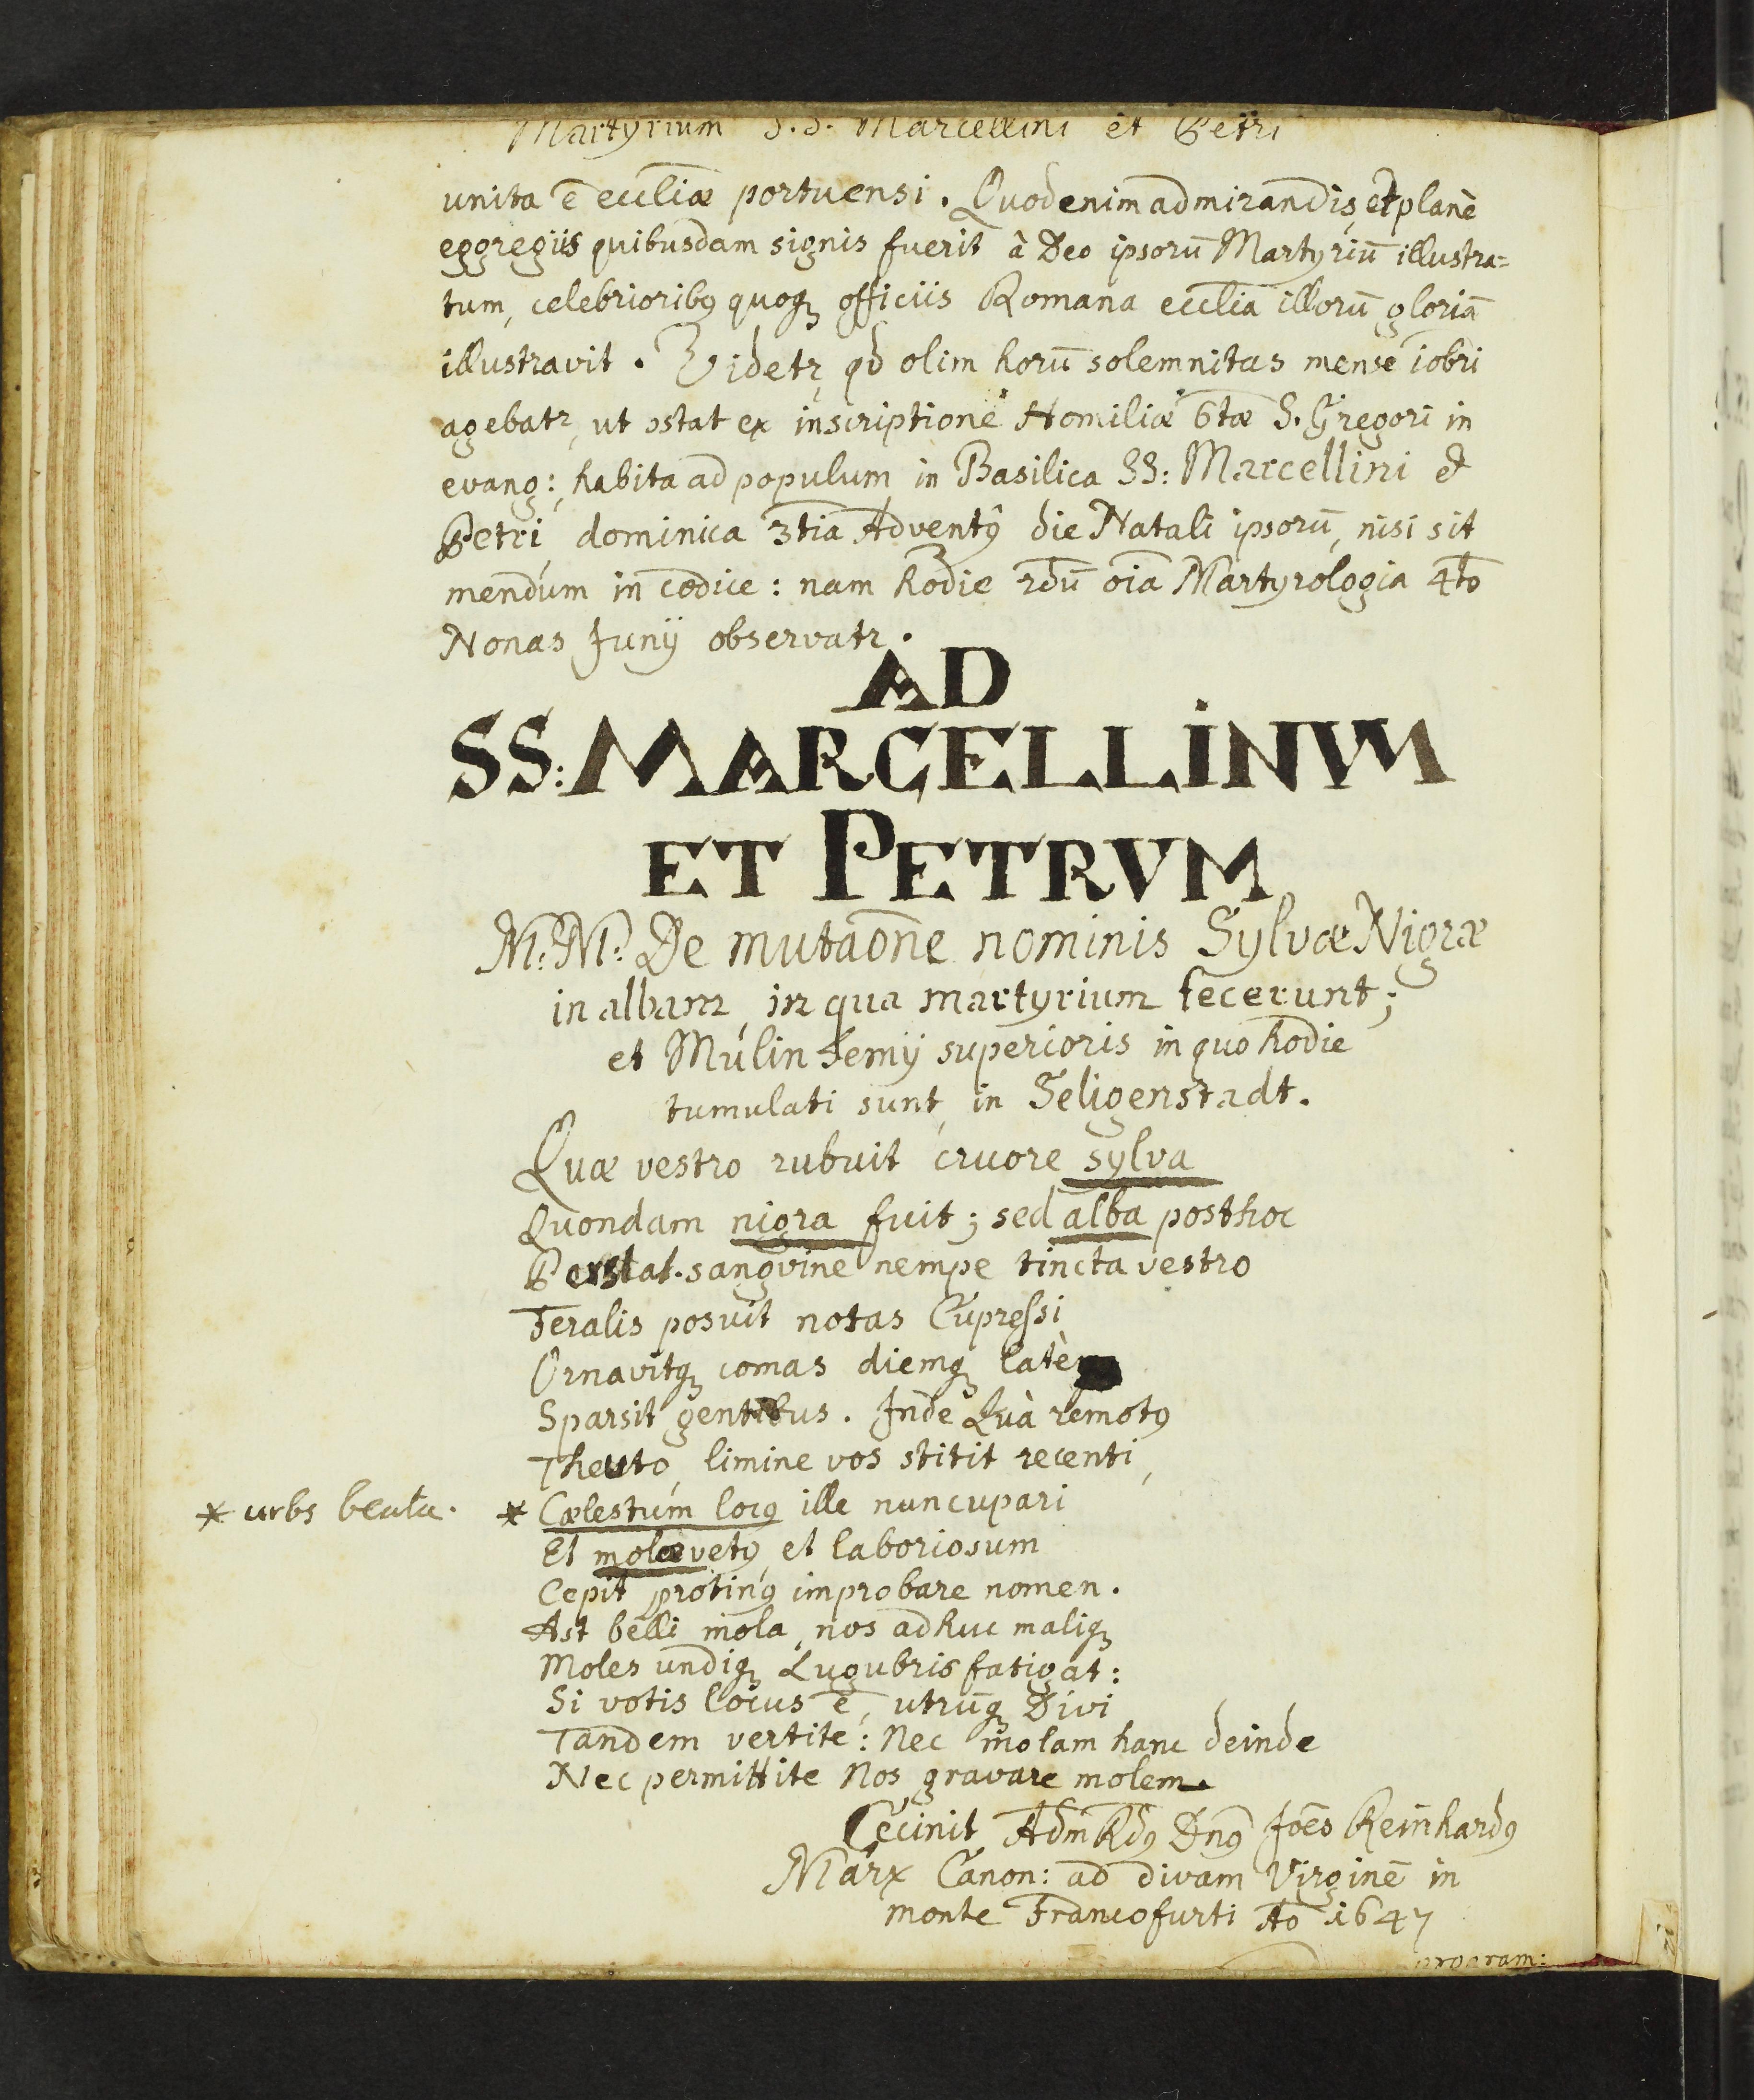 Martyrium S.S. Marcellini et Petri
unita ē eccl̄iæ portuensi. Quod enim admirandis, et planè
eggregiis quibusdam signis fuerit à Deo ipsorū Martyriū illustra=
tum, celebrioribꝰ quoqꝫ officiis Romana eccl̄ia illorū gloriā
illustravit. Videtr, qd olim horū solemnitas mense iobri
agebatr, ut ↄstat ex inscriptione Homiliæ 6tæ S. Gregori in
evang: habita ad populum in Basilica SS: Marcellini et
Petri, dominica 3tia Adventꝰ die Natali ipsorū, nisi sit
mendum in codice: nam hodie 2dū oīa Martyrologia 4to
Nonas Junij observatr.
AD
SS: MARCELLINVM
ET PETRVM
M: M: De mutaōne nominis Sylvæ Nigræ
in albam, in qua martyrium fecerunt;
et Mulinhemij superioris in quo hodie
tumulati sunt, in Seligenstadt.
Quæ vestro rubuit cruore sylva
Quondam nigra fuit; sed alba posthoc
Perstat. sangvine nempe tincta vestro
Feralis posuit notas Cupressi
Ornavitqꝫ comas diemqꝫ latè
Sparsit gentibus. Inde Quà remotꝰ
Theuto, limine vos stitit recenti,
* urbs beata. * Cælestum locꝰ ille nuncupari
Et molæ vetꝰ, et laboriosum
Cepit protinꝰ improbare nomen.
Ast belli mola, nos adhuc maliqꝫ
Moles undiqꝫ Lugubris fatigat:
Si votis locus ē, utrūqꝫ Divi
Tandem vertite: Nec molam hanc deinde
Nec permittite Nos gravare molem.
Cecinit Adm Rdꝰ Dnꝰ Joēs Reinhardꝰ
Marx Canon: ad divam Virginē in
monte Francofurti Ao 1647
program: